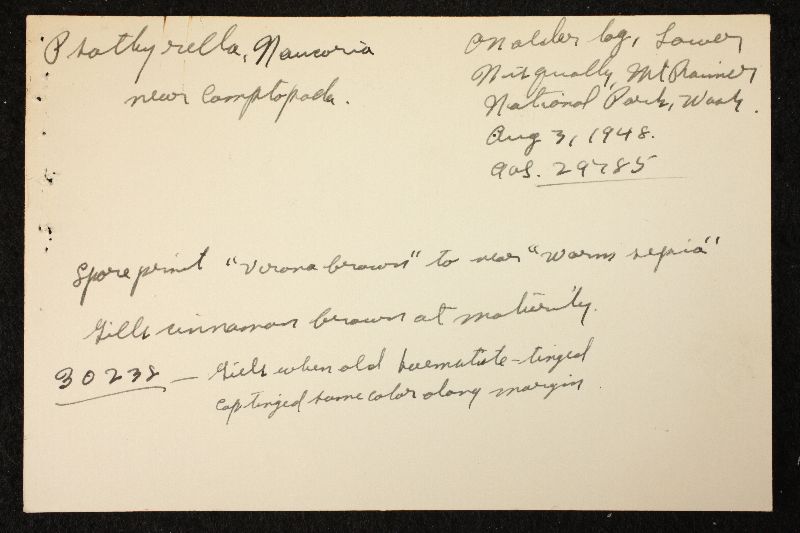 Psathyrella, Naucoria
near Camptopoda.
On alder log, Lower
Nisqually, Mt Rainier
National Park, Wash.
Aug 3, 1948.
AHS. 29785
Spore print "Verona brown" to near "warm sepia"
Gills cinnamon brown at maturity.
30238 — Gills when old haematite-tinged
cap tinged same color along margin.